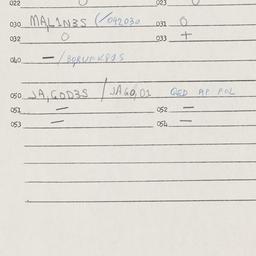 022 O 023 O
030 MAL1N3S (/042030 031 O
032 O 033 +
040 — /
050 JA,GOD3S / JAGO,01 QED AP POL
051 — 052 —
053 — 054 —